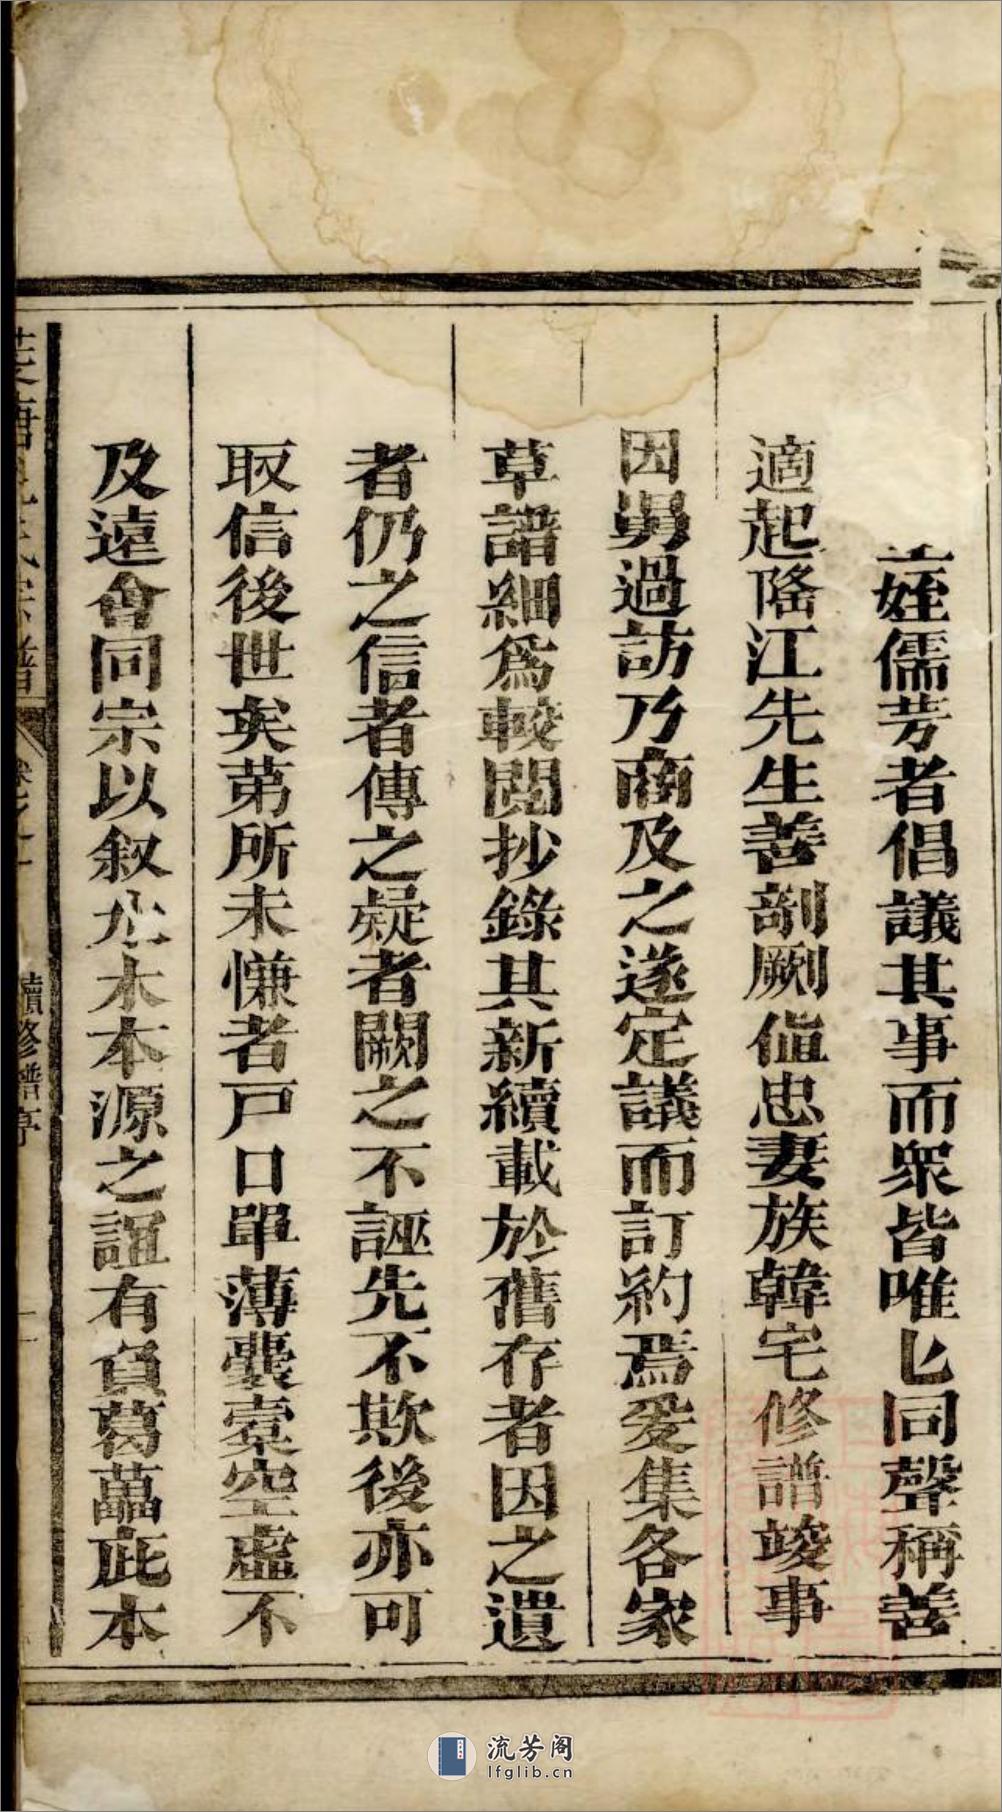 姪儒芳者倡議其事而衆皆唯匕同聲稱善
適起隆江先生善剞劂値忠妻族韓宅修譜竣事
因舅過訪乃商及之遂定議而訂約焉爰集各家
草譜細爲較閱抄錄其新續載於舊存者因之遺
者仍之信者傳之疑者闕之不誣先不欺後亦可
取信後世矣第所未慊者戸口單薄囊槖空虛不
及遠會同宗以叙水木本源之誼有負葛藟庇本
宗譜
續修譜序
流芳阁
lfglib.cn